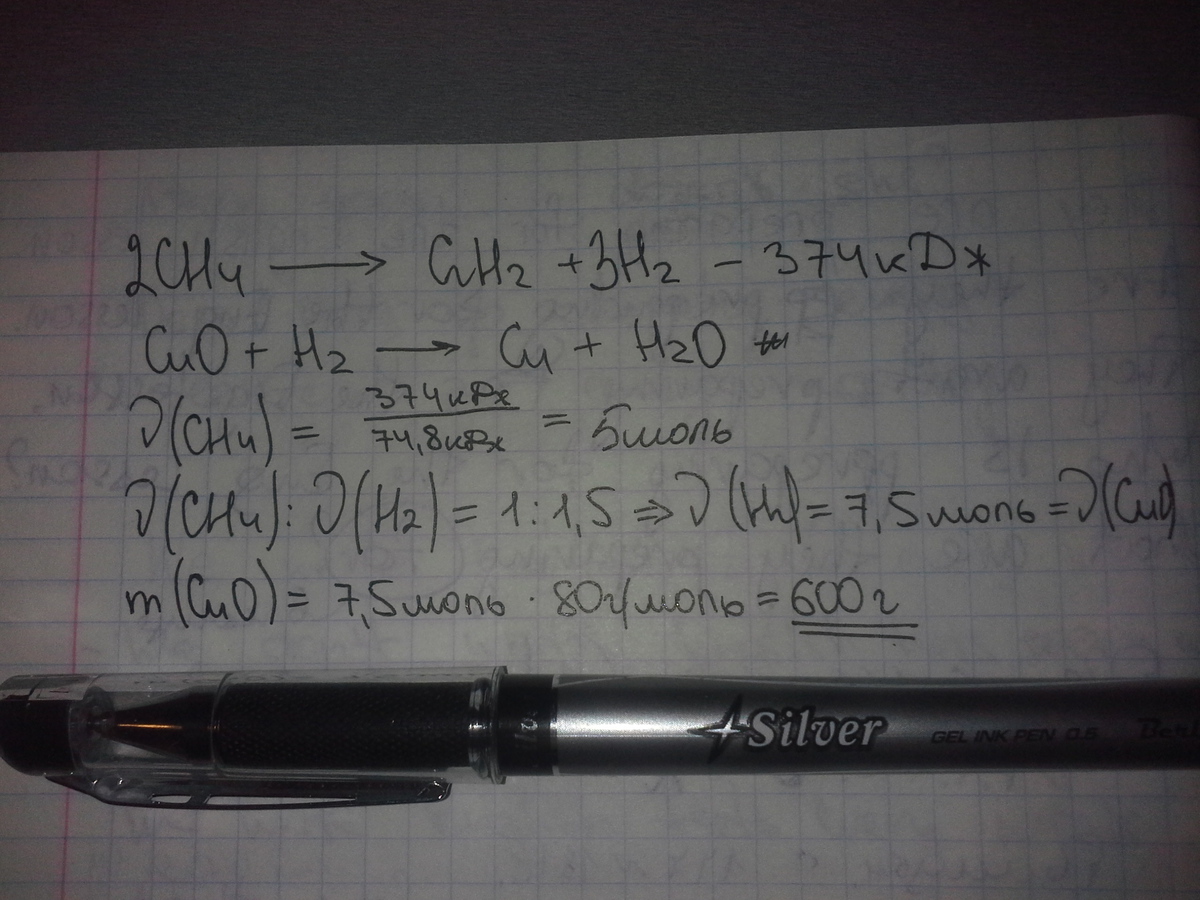 2CH4 → C2H2 + 3H2 - 374кДж
CuO + H2 → Cu + H2O
ν(CH4) = 374кДж / 74,8кДж = 5моль
ν(CH4) : ν(H2) = 1 : 1,5 ⇒ ν(H2) = 7,5моль = ν(CuO)
m(CuO) = 7,5моль · 80г/моль = 600г
Silver GEL INK PEN 0.5